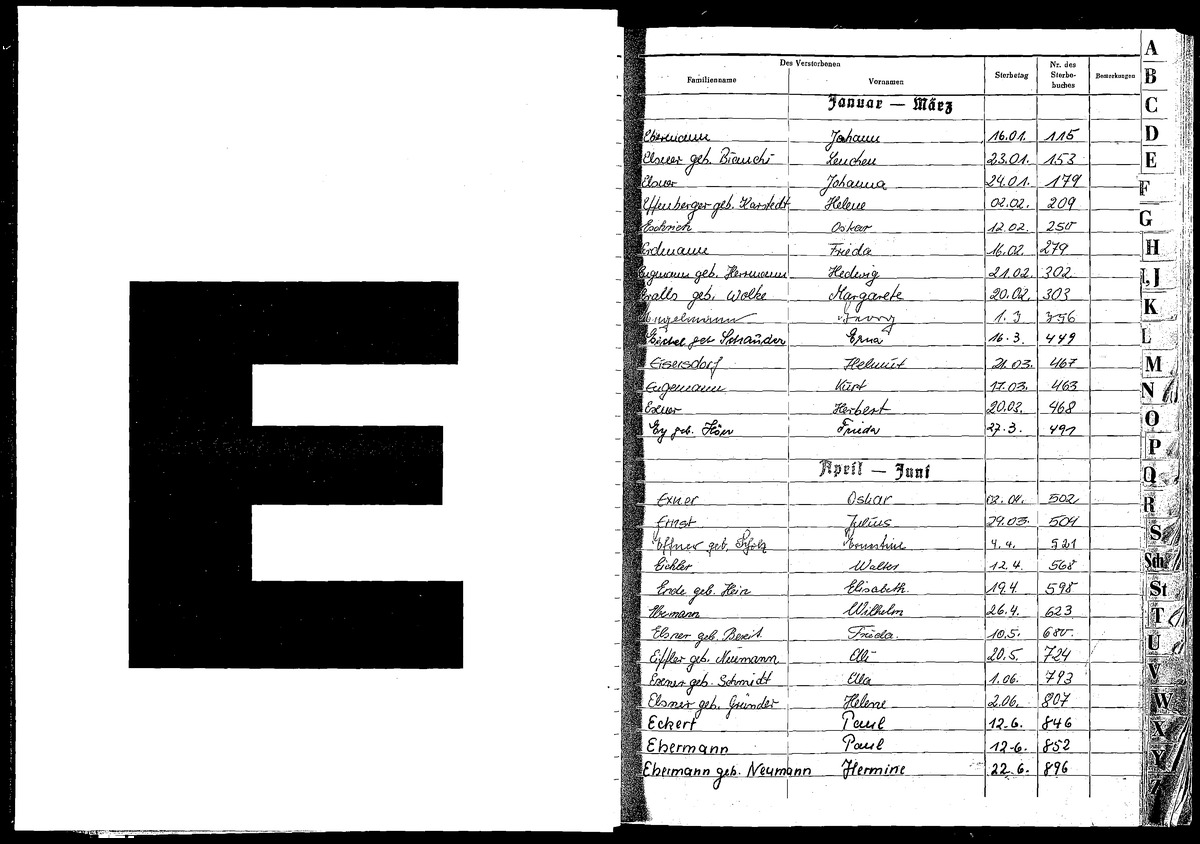 E
Des Verstorbenen
Familienname Vornamen Sterbetag Nr. des Sterbebuches Bemerkungen
Januar — März
Ebermann Johann 16.01. 115
Elsner geb. Bianchi Lenchen 23.01. 153
Elsner Johanna 24.01. 179
Effenberger geb. Harstedt Helene 02.02. 209
Eschrich Oskar 12.02. 250
Erdmann Frieda 16.02. 279
geb. Herrmann Hedwig 21.02. 302
geb. Wolke Margarete 20.02. 303
Engelmann Georg 1.3 356
geb. Schauder Erna 16.3. 449
Eisersdorf Helmut 21.03. 467
Eugemann Kurt 17.03. 463
Exner Herbert 20.03. 468
Ey geb. Frieda 27.3. 491
April — Juni
Exner Oskar 02.04. 502
Ernst Julius 29.03. 504
geb. Scholz Ernestine 4.4. 521
Eichler Walter 12.4. 568
Ende geb. Hein Elisabeth 19.4. 598
Ebermann Wilhelm 26.4. 623
Elsner geb. Frieda. 10.5. 680
Eiffler geb. Neumann Elli 20.5. 724
Exner geb. Schmidt Ella 1.06. 793
Elsner geb. Gründer Helene 2.06. 807
Eckert Paul 12.6. 846
Ebermann Paul 12.6. 852
Ebermann geb. Neumann Hermine 22.6. 896
A
B
C
D
E
F
G
H
I,J
K
L
M
N
O
P
Q
R
S
Sch
St
T
U
V
W
X
Y
Z